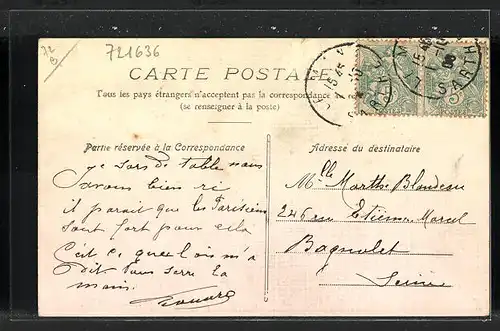 72
721636
CARTE POSTALE
Tous les pays étrangers n'acceptent pas la correspondance
(se renseigner à la poste)
Partie réservée à la Correspondance
Adresse du destinataire
je sors de table nous
avons bien ri
il parait que les Parisiens
sont fort pour cela
C'est ce que l'on m'a
dit vous serre la
main.
Mlle Marthe Blondeau
246 rue Etienne Marcel
Bagnolet
Seine
15 45
SARTHE
SARTHE